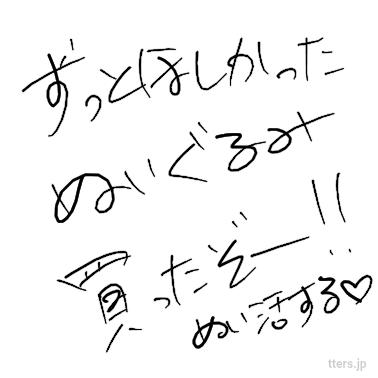 ずっとほしかった
ぬいぐるみ
買ったぞー!!
ぬい活する♡
tters.jp